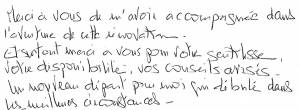 Merci à vous de m'avoir accompagnée dans
l'aventure de cette innovation.
Et surtout merci à vous pour votre gentillesse,
votre disponibilité, vos conseils avisés.
Un nouveau départ pour moi qui débute dans
les meilleures circonstances -